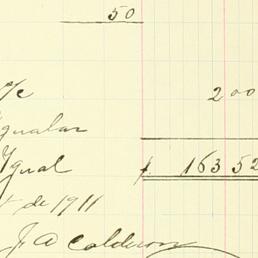 50
o/c 200
Igualar
Igual $ 163 52
de 1911
J. A. Calderon